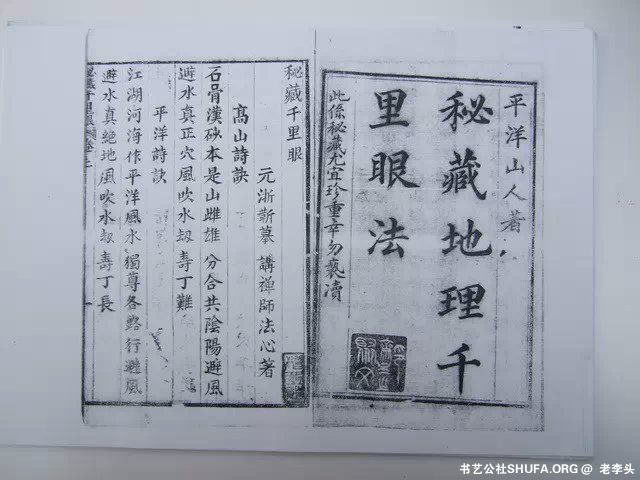 平洋山人著
秘藏地理千
里眼法
此係秘藏尤宜珍重幸勿褻瀆
秘藏千里眼
元浙蘄蓦 講禪師法心著
高山詩訣
石骨漢砂本是山雌雄 分合共陰陽避風
避水真正穴風吹水刼 壽丁難
平洋詩訣
江湖河海作平洋風水 獨尊各路行避風
避水真絶地風吹水刼 壽丁長
书艺公社SHUFA.ORG @ 老李头